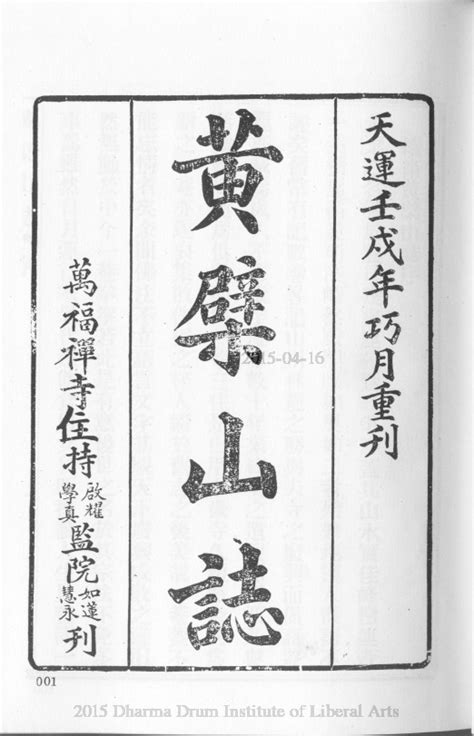 天運壬戍年巧月重刊
黃檗山誌
萬福禪寺住持啟耀學真監院如蓮慧永刊
2015-04-16
001
2015 Dharma Drum Institute of Liberal Arts